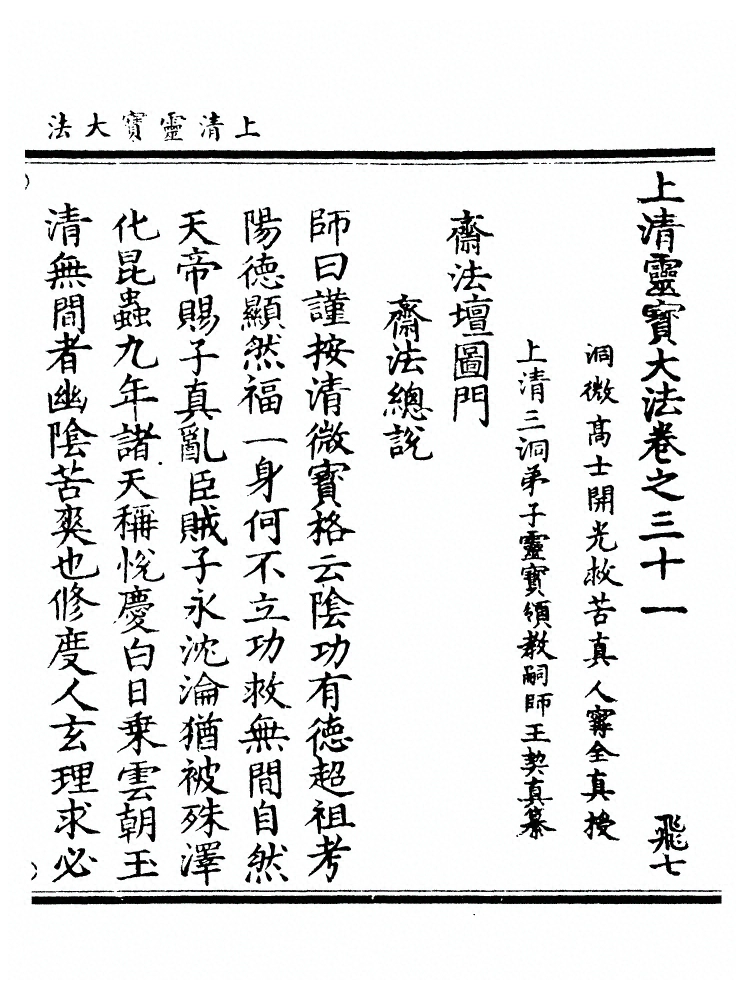 上清靈寶大法
上清靈寶大法卷之三十一 飛七
洞微高士開光救苦真人寗全真授
上清三洞弟子靈寶領教嗣師王契真纂
齋法壇圖門
齋法總說
師曰謹按清微寶格云陰功有德超祖考
陽德顯然福一身何不立功救無間自然
天帝賜子真亂臣賊子永沈淪猶被殊澤
化昆蟲九年諸天稱悅慶白日乗雲朝玉
清無間者幽陰苦爽也修度人玄理求必